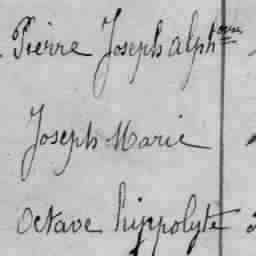 Pierre Joseph alph onse
Joseph Marie
Octave hippolyte